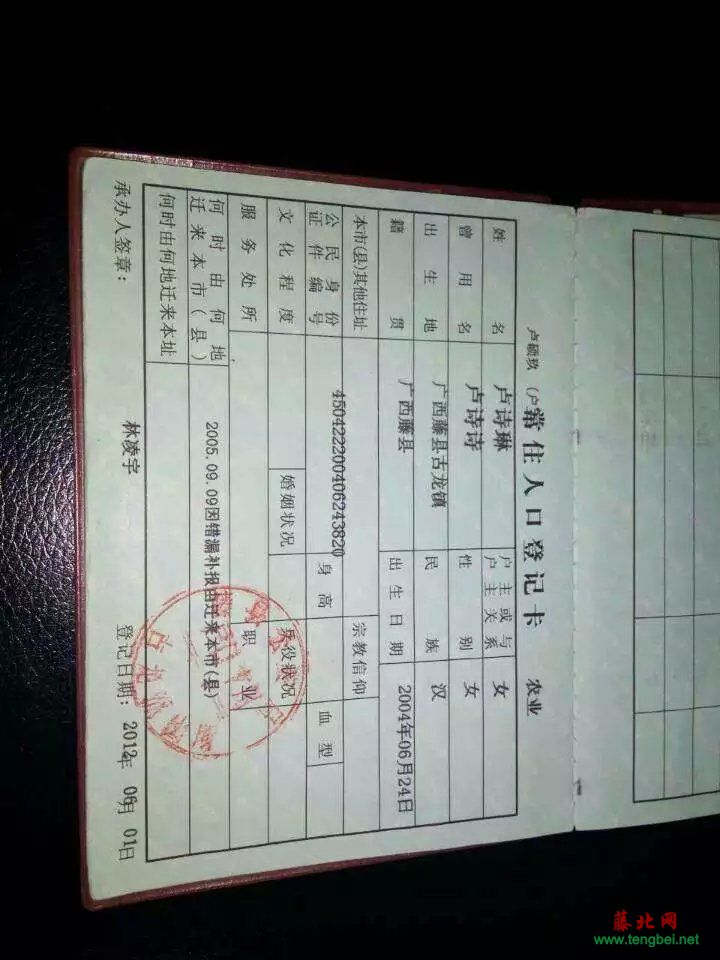 常住人口登记卡
卢硕玖 (户 农业
姓名 卢诗琳 户主或与户主关系 女
曾用名 卢诗诗 性别 女
出生地 广西藤县古龙镇 民族 汉
籍贯 广西藤县 出生日期 2004年06月24日
本市(县)其他住址 宗教信仰
公民身份证件编号 450422200406243820 身高 血型
文化程度 婚姻状况 兵役状况
服务处所 职业
何时由何地迁来本市(县) 2005.09.09因错漏补报由迁来本市(县)
何时由何地迁来本址
承办人签章: 林凌宇 登记日期: 2012年 06月 01日
藤北网
www.tengbei.net